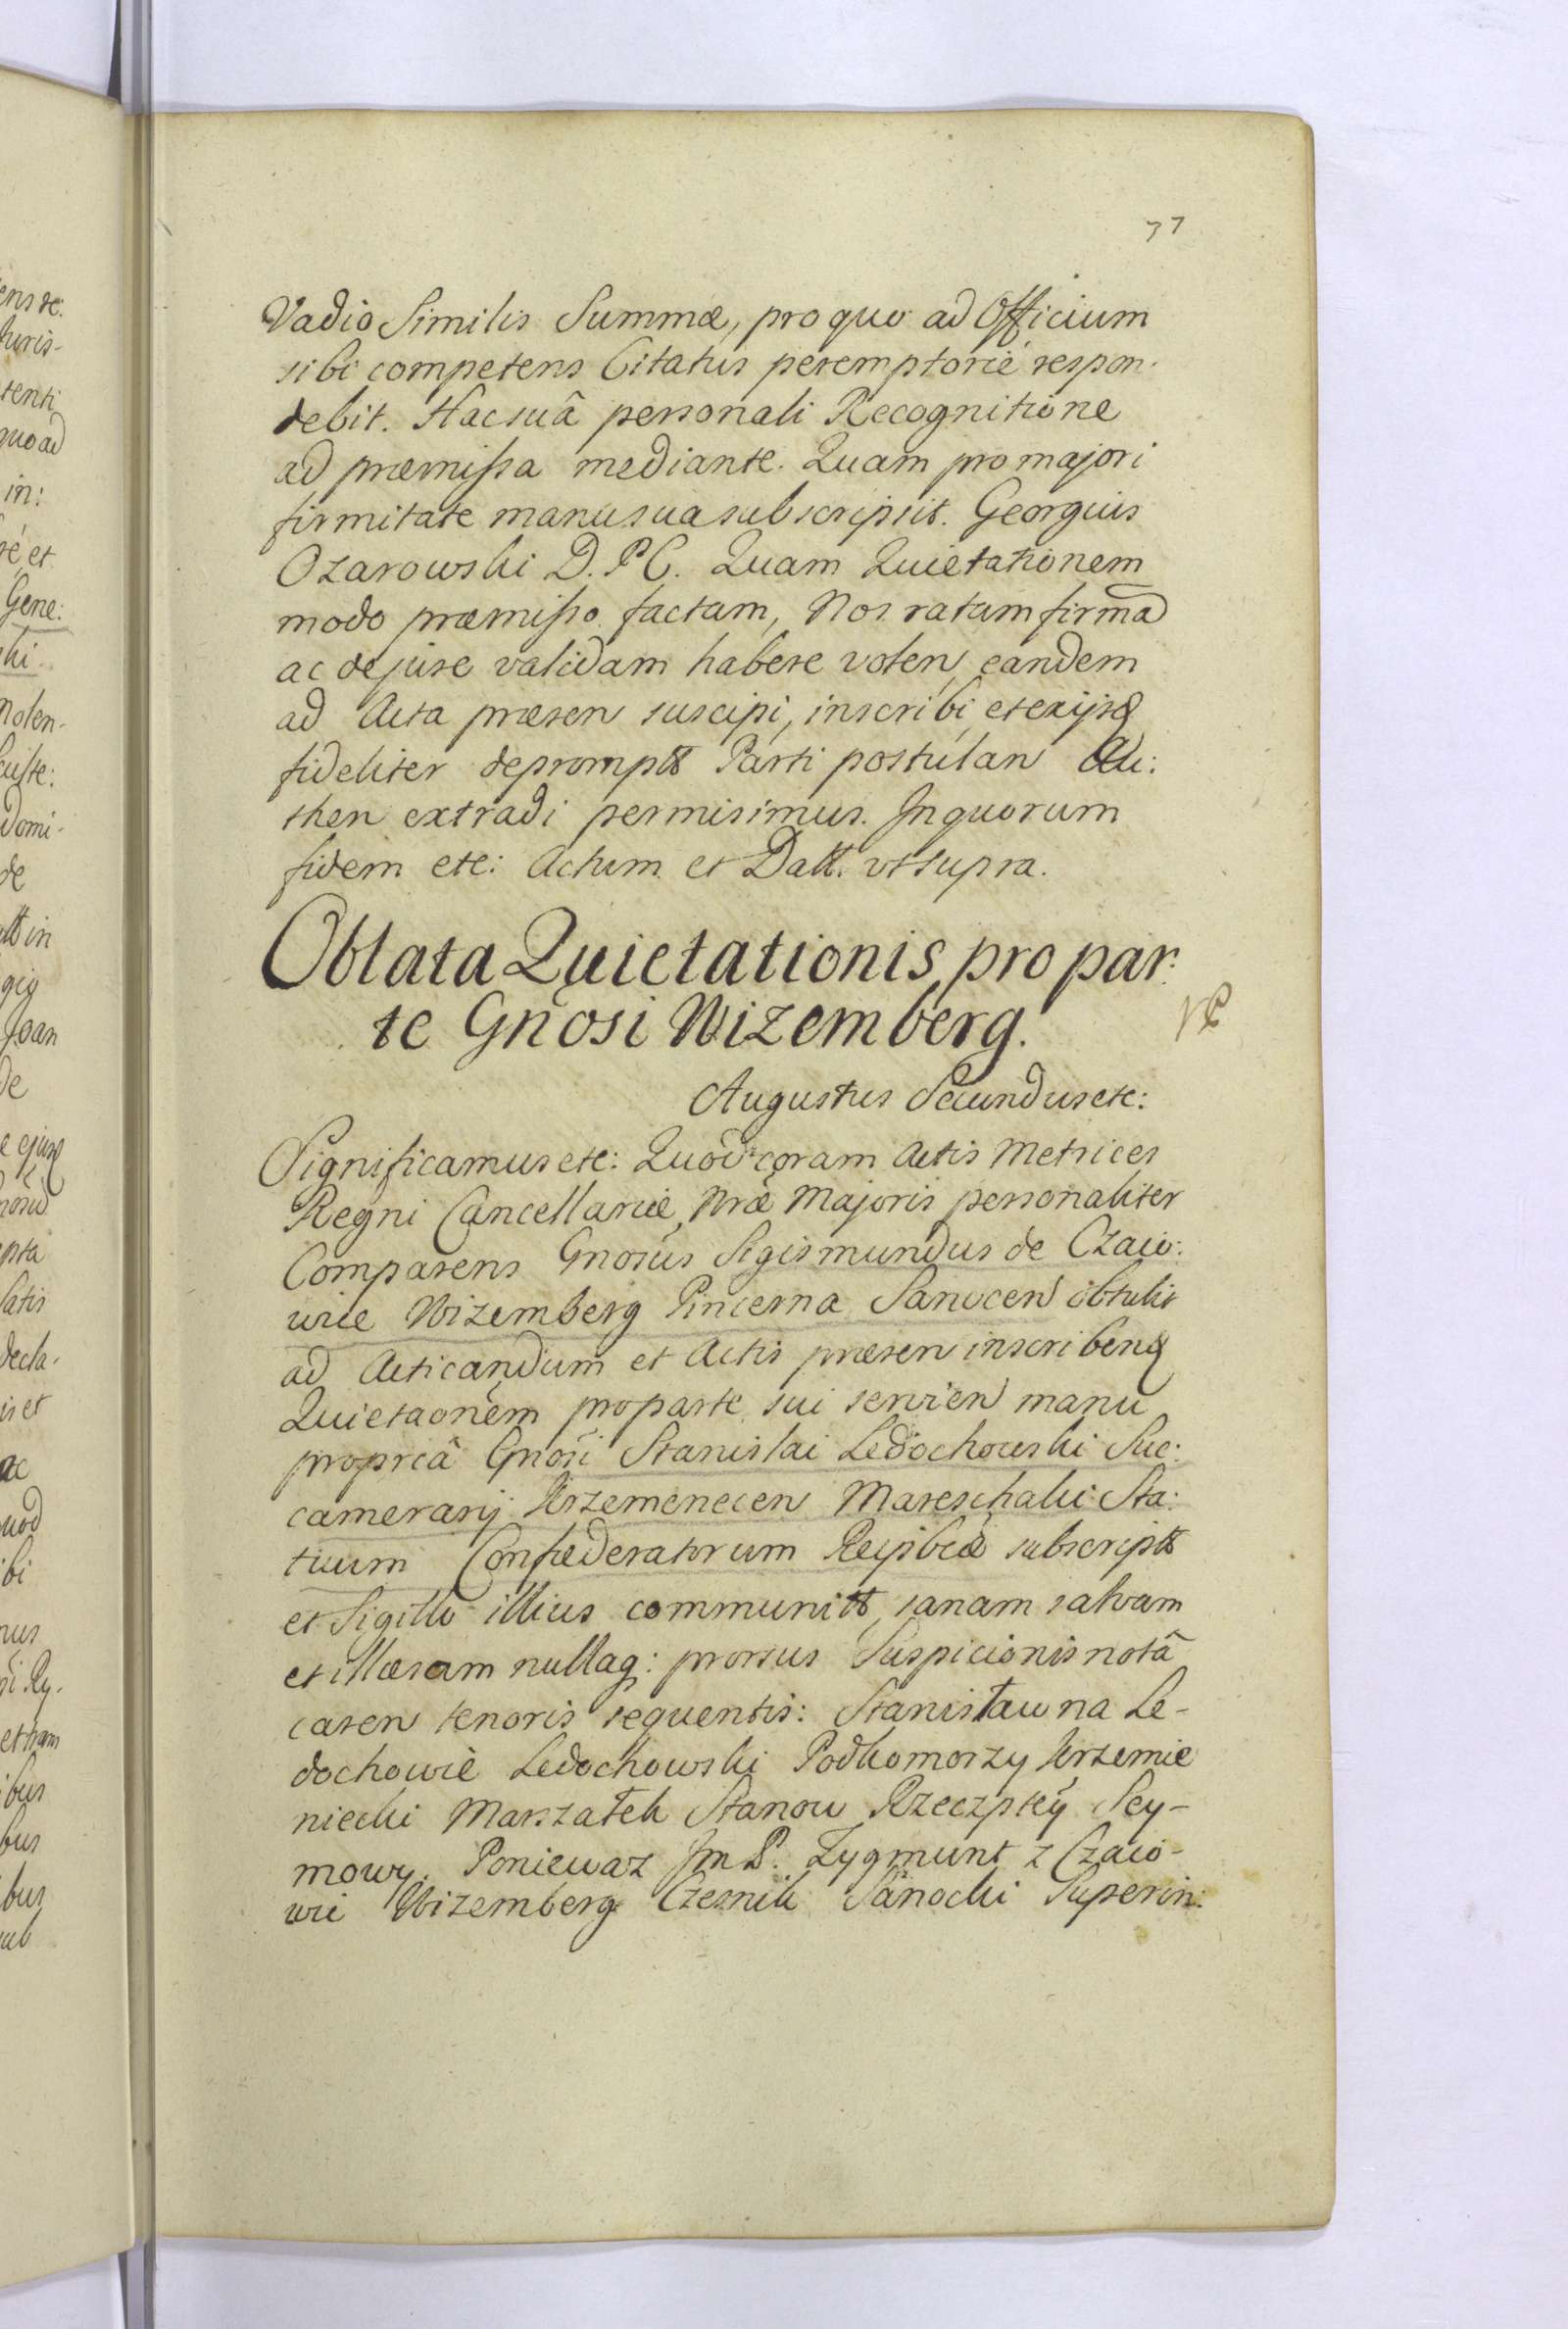 77
Vadio Similis Summæ, pro quo ad Officium
sibi competens Citatus peremptorié respon-
debit. Hac suâ personali Recognitione
ad præmissa mediante. Quam pro majori
firmitate manu sua subscripsit. Georgius
Ozarowski D. P C. Quam Quietationem
modo præmisso factam, Nos ratam firmã
ac de jure validam habere volen eandem
ad Acta præsen suscipi, inscribi et exijsq
fideliter deprompt Parti postulan Au:
then extradi permisimus. In quorum
fidem etc: Actum et Datt. ut supra.
Oblata Quietationis pro par:
te Gnosi Wizemberg.
Augustus Secundus etc:
Significamus etc: Quod coram Actis Metrices
Regni Cancellariæ Nræ Majoris personaliter
Comparens Gnosus Sigismundus de Czaio:
wice Wizemberg Pincerna Sanocen obtulit
ad Acticandum et Actis præsen inscribend
Quietaonem pro parte sui servien manu
propriâ Gnosi Stanislai Ledochowski Suc:
camerarij Krzemenecen Mareschalci Sta:
tuum Confæderatorum Reipbcæ subscript
et Sigillo illius communitt, sanam salvam
et illæsam nullaq: prorsus Suspicionis notâ
caren tenoris sequentis: Stanisław na Le-
dochowie Ledochowski Podkomorzy Krzemie
niecki Marszałek Stanow Rzeczptey Sey-
mowy. Poniewaz Jm P. Zygmunt z Czaio-
wic Wizemberg Czesnik Sanocki Superin: